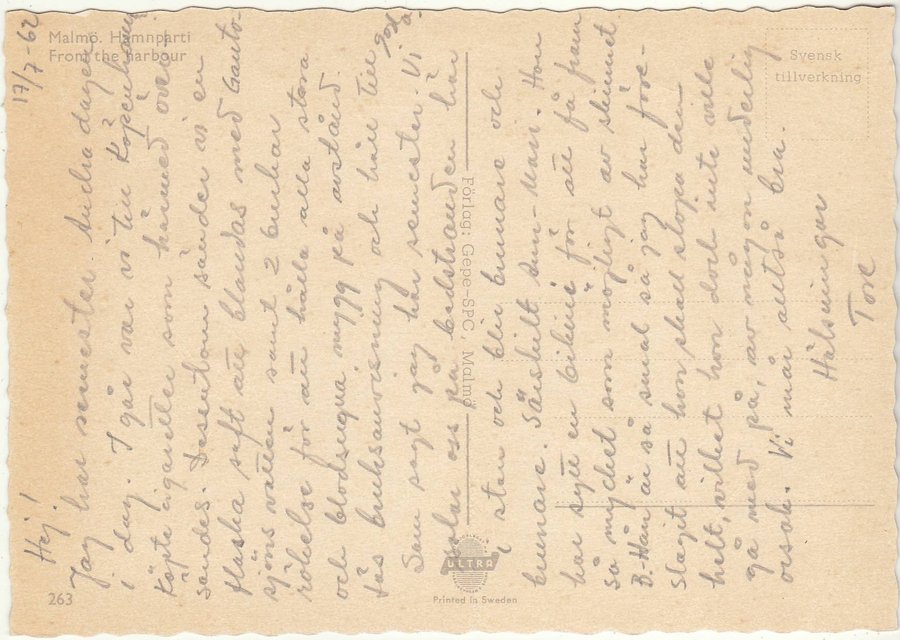 Malmö. Hamnparti
From the harbour
Svensk
tillverkning
Förlag: Gepe-SPC, Malmö
ULTRA
Printed in Sweden
263
17/7-62
Hej!
Jag har semester. Andra dagen
i dag. I går var vi till Köpenhamn
Köpte cigaretter som härmed över-
sändes. Dessutom sänder vi en
flaska saft att blandas med Gauto-
sjöns vatten samt 2 burkar
rökelse för att hålla alla stora
och blodsugna mygg på avstånd.
Läs bruksanvisning och håll till godo.
Som sagt jag har semester. Vi
på badstranden här
i stan och blir brunare och
brunare. Särskilt Ann-Mari. Hon
har sytt en bikini för att få fram
så mycket som möjligt av skinnet
B.-Hån är så smal så jag har före-
slagit att hon skall slopa den
helt, vilket hon dock inte ville
gå med på, av någon underlig
orsak. Vi mår alltså bra.
Hälsningar
Tore